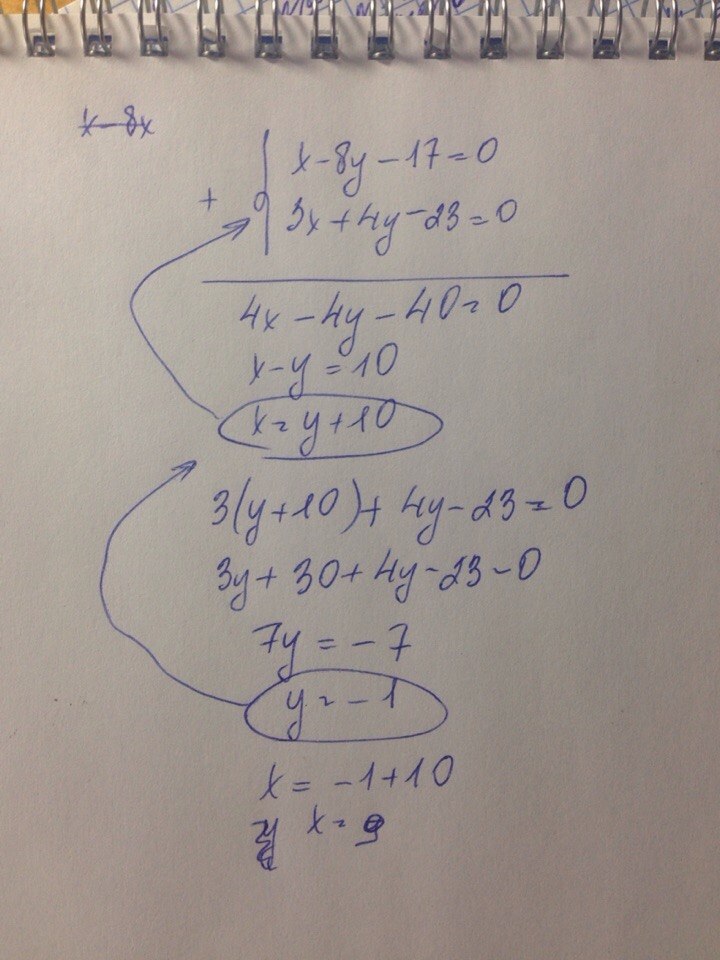 x-8x
x-8y-17=0
+ 3x+4y-23=0
4x-4y-40=0
x-y=10
x=y+10
3(y+10)+4y-23=0
3y+30+4y-23-0
7y=-7
y=-1
x=-1+10
x=9